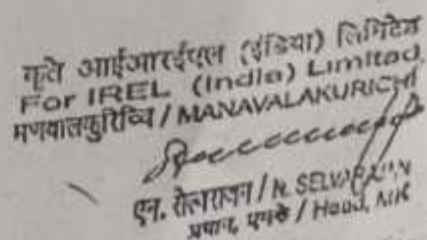 कृते आईआरईएल (इंडिया) लिमिटेड
For IREL (India) Limited
मणवालकुरिच्चि / MANAVALAKURICHI
एन. सेल्वराजन / N. SELVARAJAN
प्रधान, एमके / Head, MK